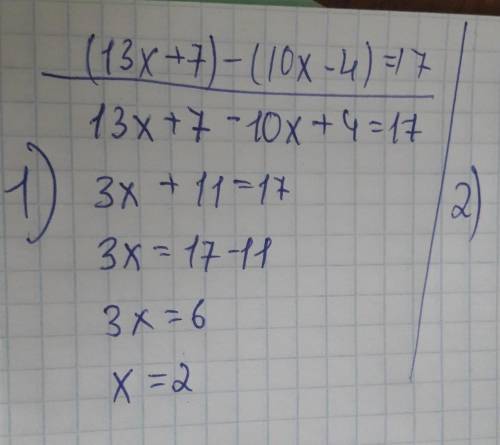 (13x+7)-(10x-4)=17
13x+7-10x+4=17
1) 3x+11=17
3x=17-11
3x=6
x=2
2)